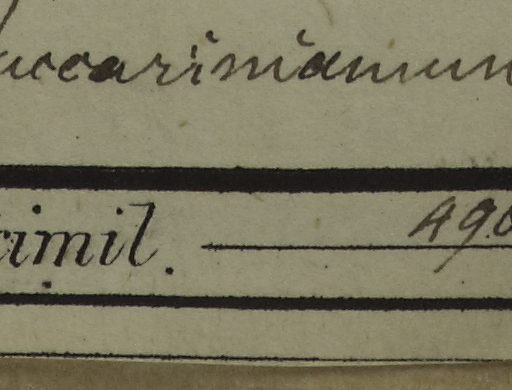 uccarinianum
cimil. 490